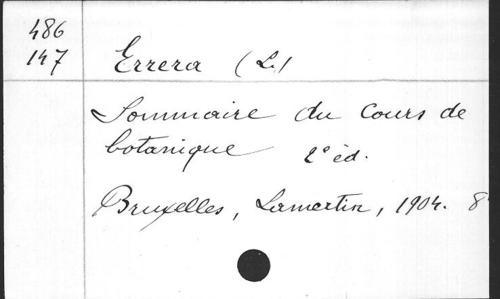 486
147
Errera (L.)
Sommaire du Cours de
botanique 2e éd.
Bruxelles, Lamertin, 1904. 8°